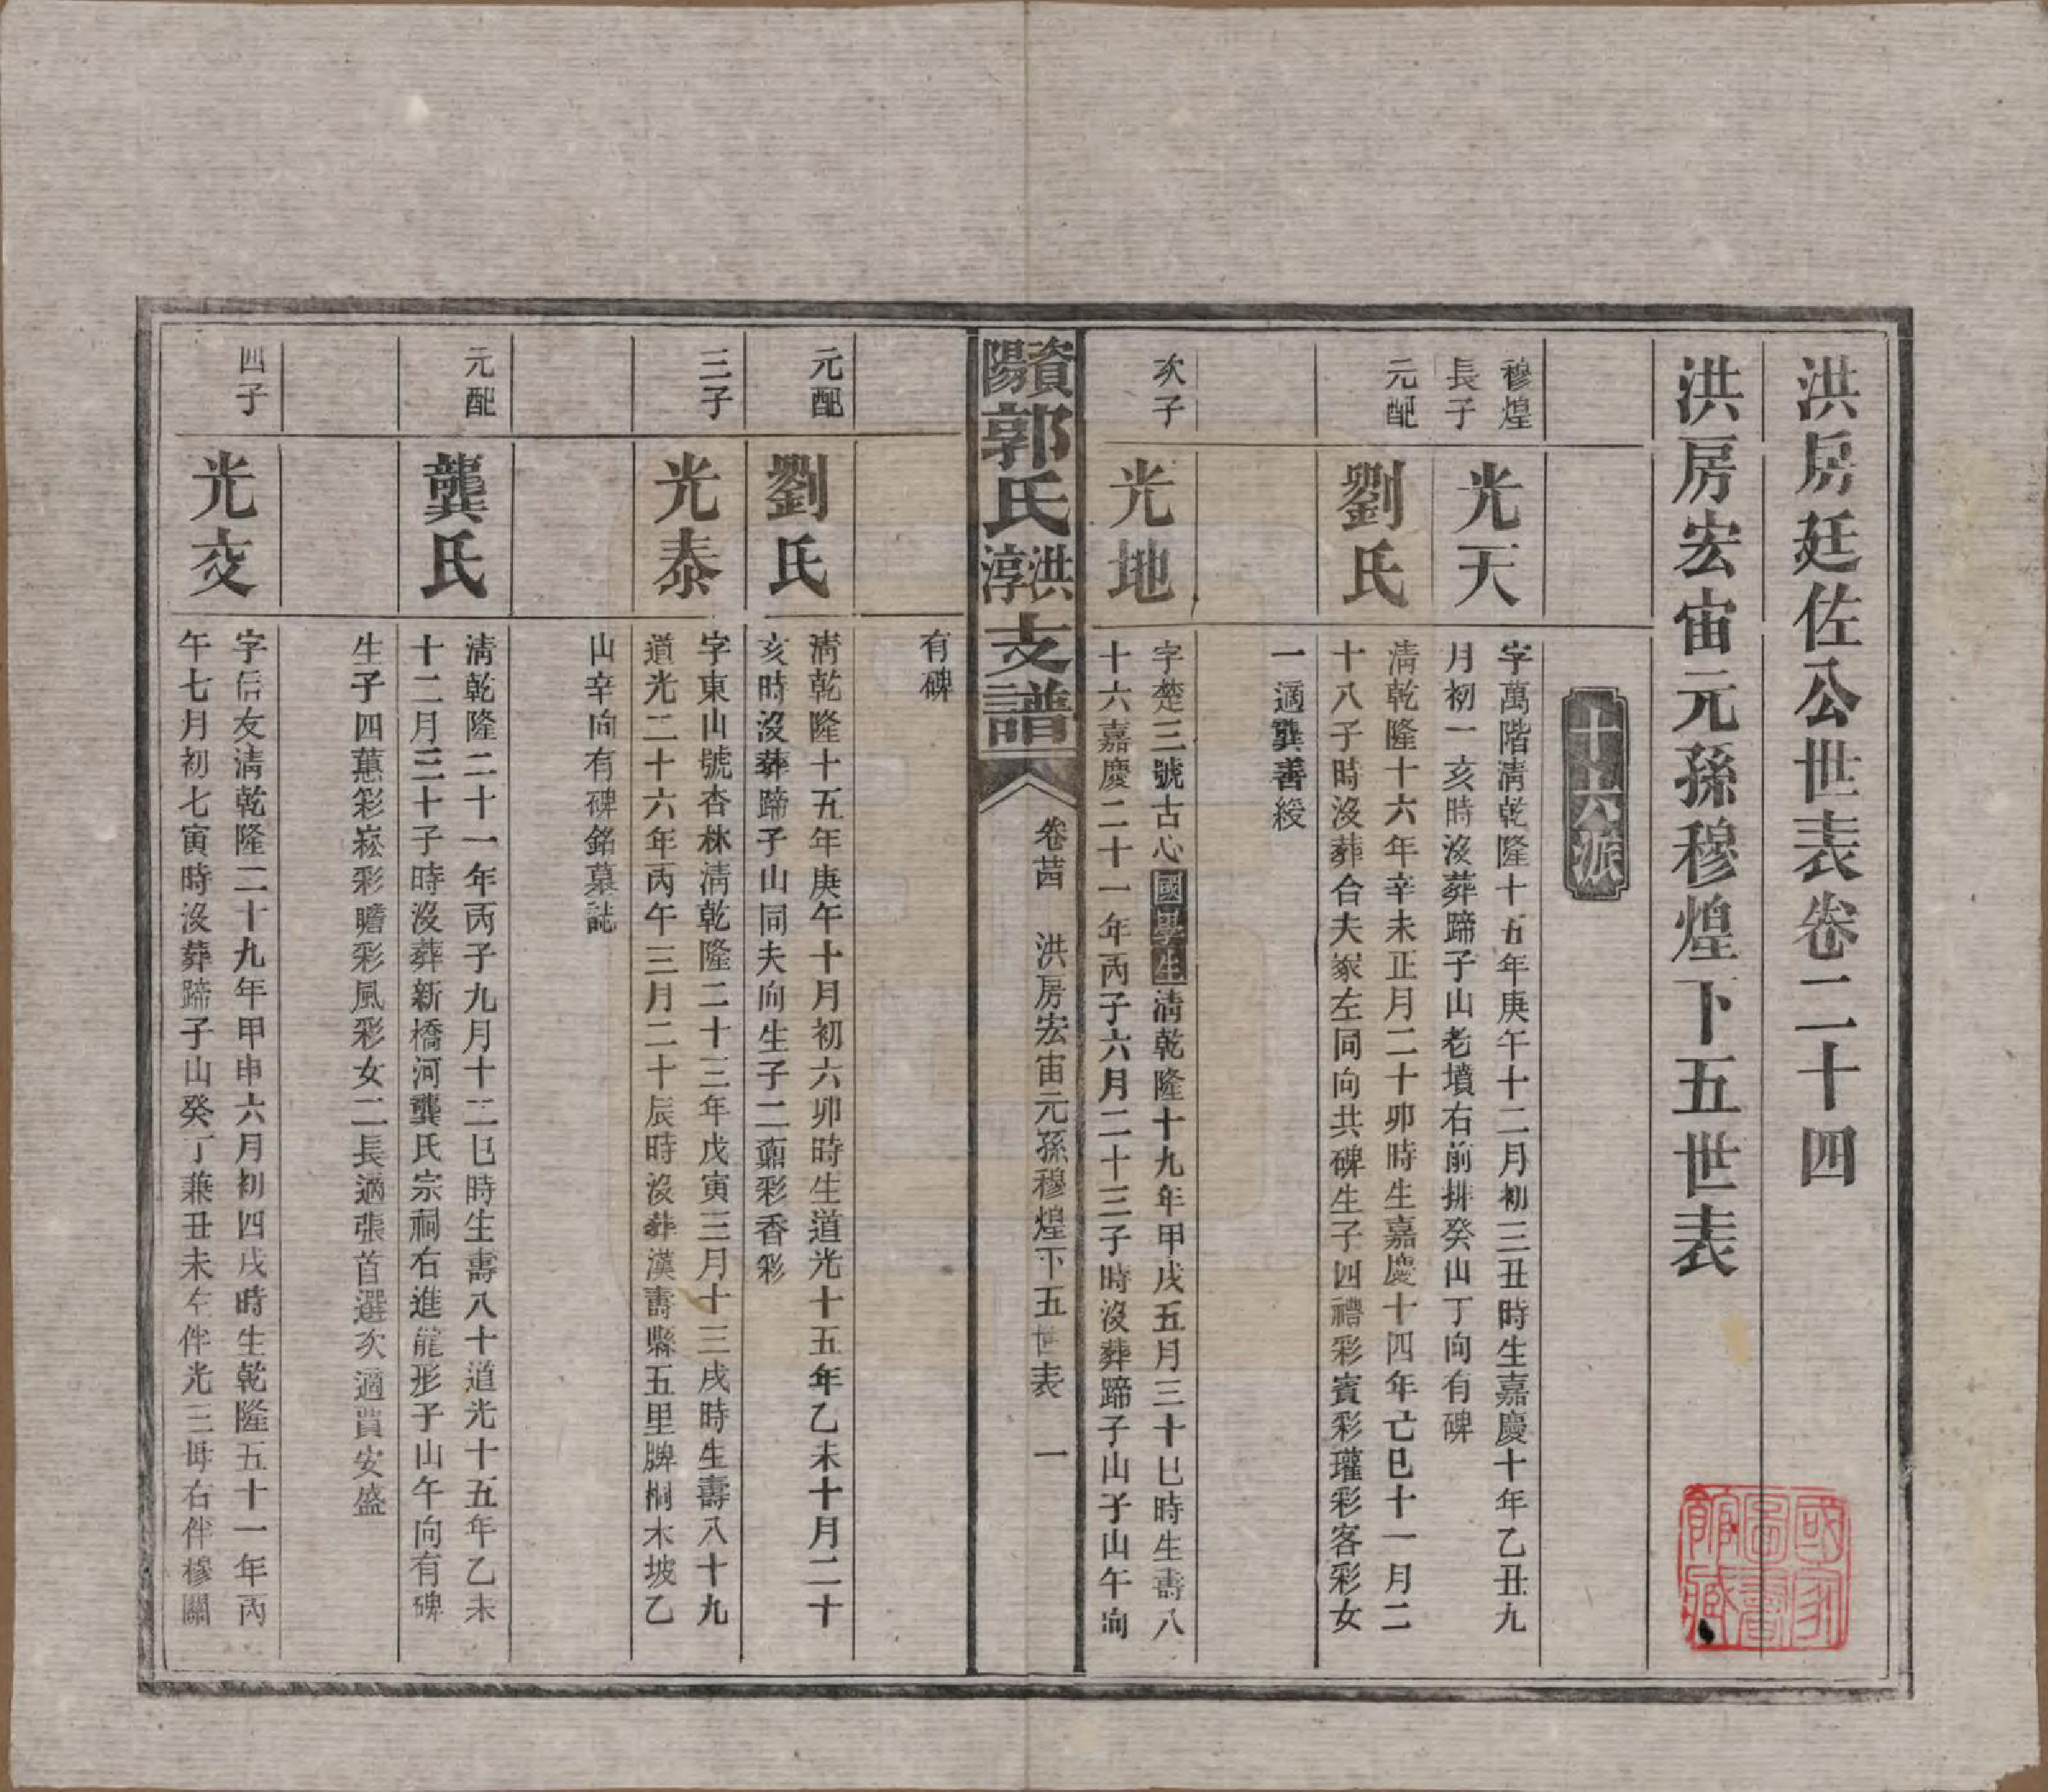 洪房廷佐公世表卷二十四
洪房宏宙元孫穆煌下五世表
十六派
穆煌
長子
光天
字萬階清乾隆十五年庚午十二月初三丑時生嘉慶十年乙丑九
月初一亥時沒葬蹄子山老墳右前排癸山丁向有碑
元配
劉氏
清乾隆十六年辛未正月二十卯時生嘉慶十四年亡巳十一月二
十八子時沒葬合夫冢左同向共碑生子四禮彩賓彩瓘彩客彩女
一適龔善綬
次子
光地
字楚三號古心國學生清乾隆十九年甲戌五月三十巳時生壽八
十六嘉慶二十一年丙子六月二十三子時沒葬蹄子山子山午向
資陽郭氏洪淳支譜
卷茜
洪房宏宙元孫穆煌下五世表
一
有碑
元配
劉氏
清乾隆十五年庚午十月初六卯時生道光十五年乙未十月二十
亥時沒葬蹄子山同夫向生子二鼐彩香彩
三子
光泰
字東山號杏林清乾隆二十三年戊寅三月十三戌時生壽八十九
道光二十六年丙午三月二十辰時沒葬漢壽縣五里牌桐木坡乙
山辛向有碑銘墓誌
元配
龔氏
清乾隆二十一年丙子九月十二巳時生壽八十道光十五年乙未
十二月三十子時沒葬新橋河龔氏宗祠右進龍形子山午向有碑
生子四蕙彩崧彩瞻彩風彩女二長適張首選次適賈安盛
四子
光交
字信友清乾隆二十九年甲申六月初四戌時生乾隆五十一年丙
午七月初七寅時沒葬蹄子山癸丁兼丑未左伴光三母右伴穆關
國家圖書館藏